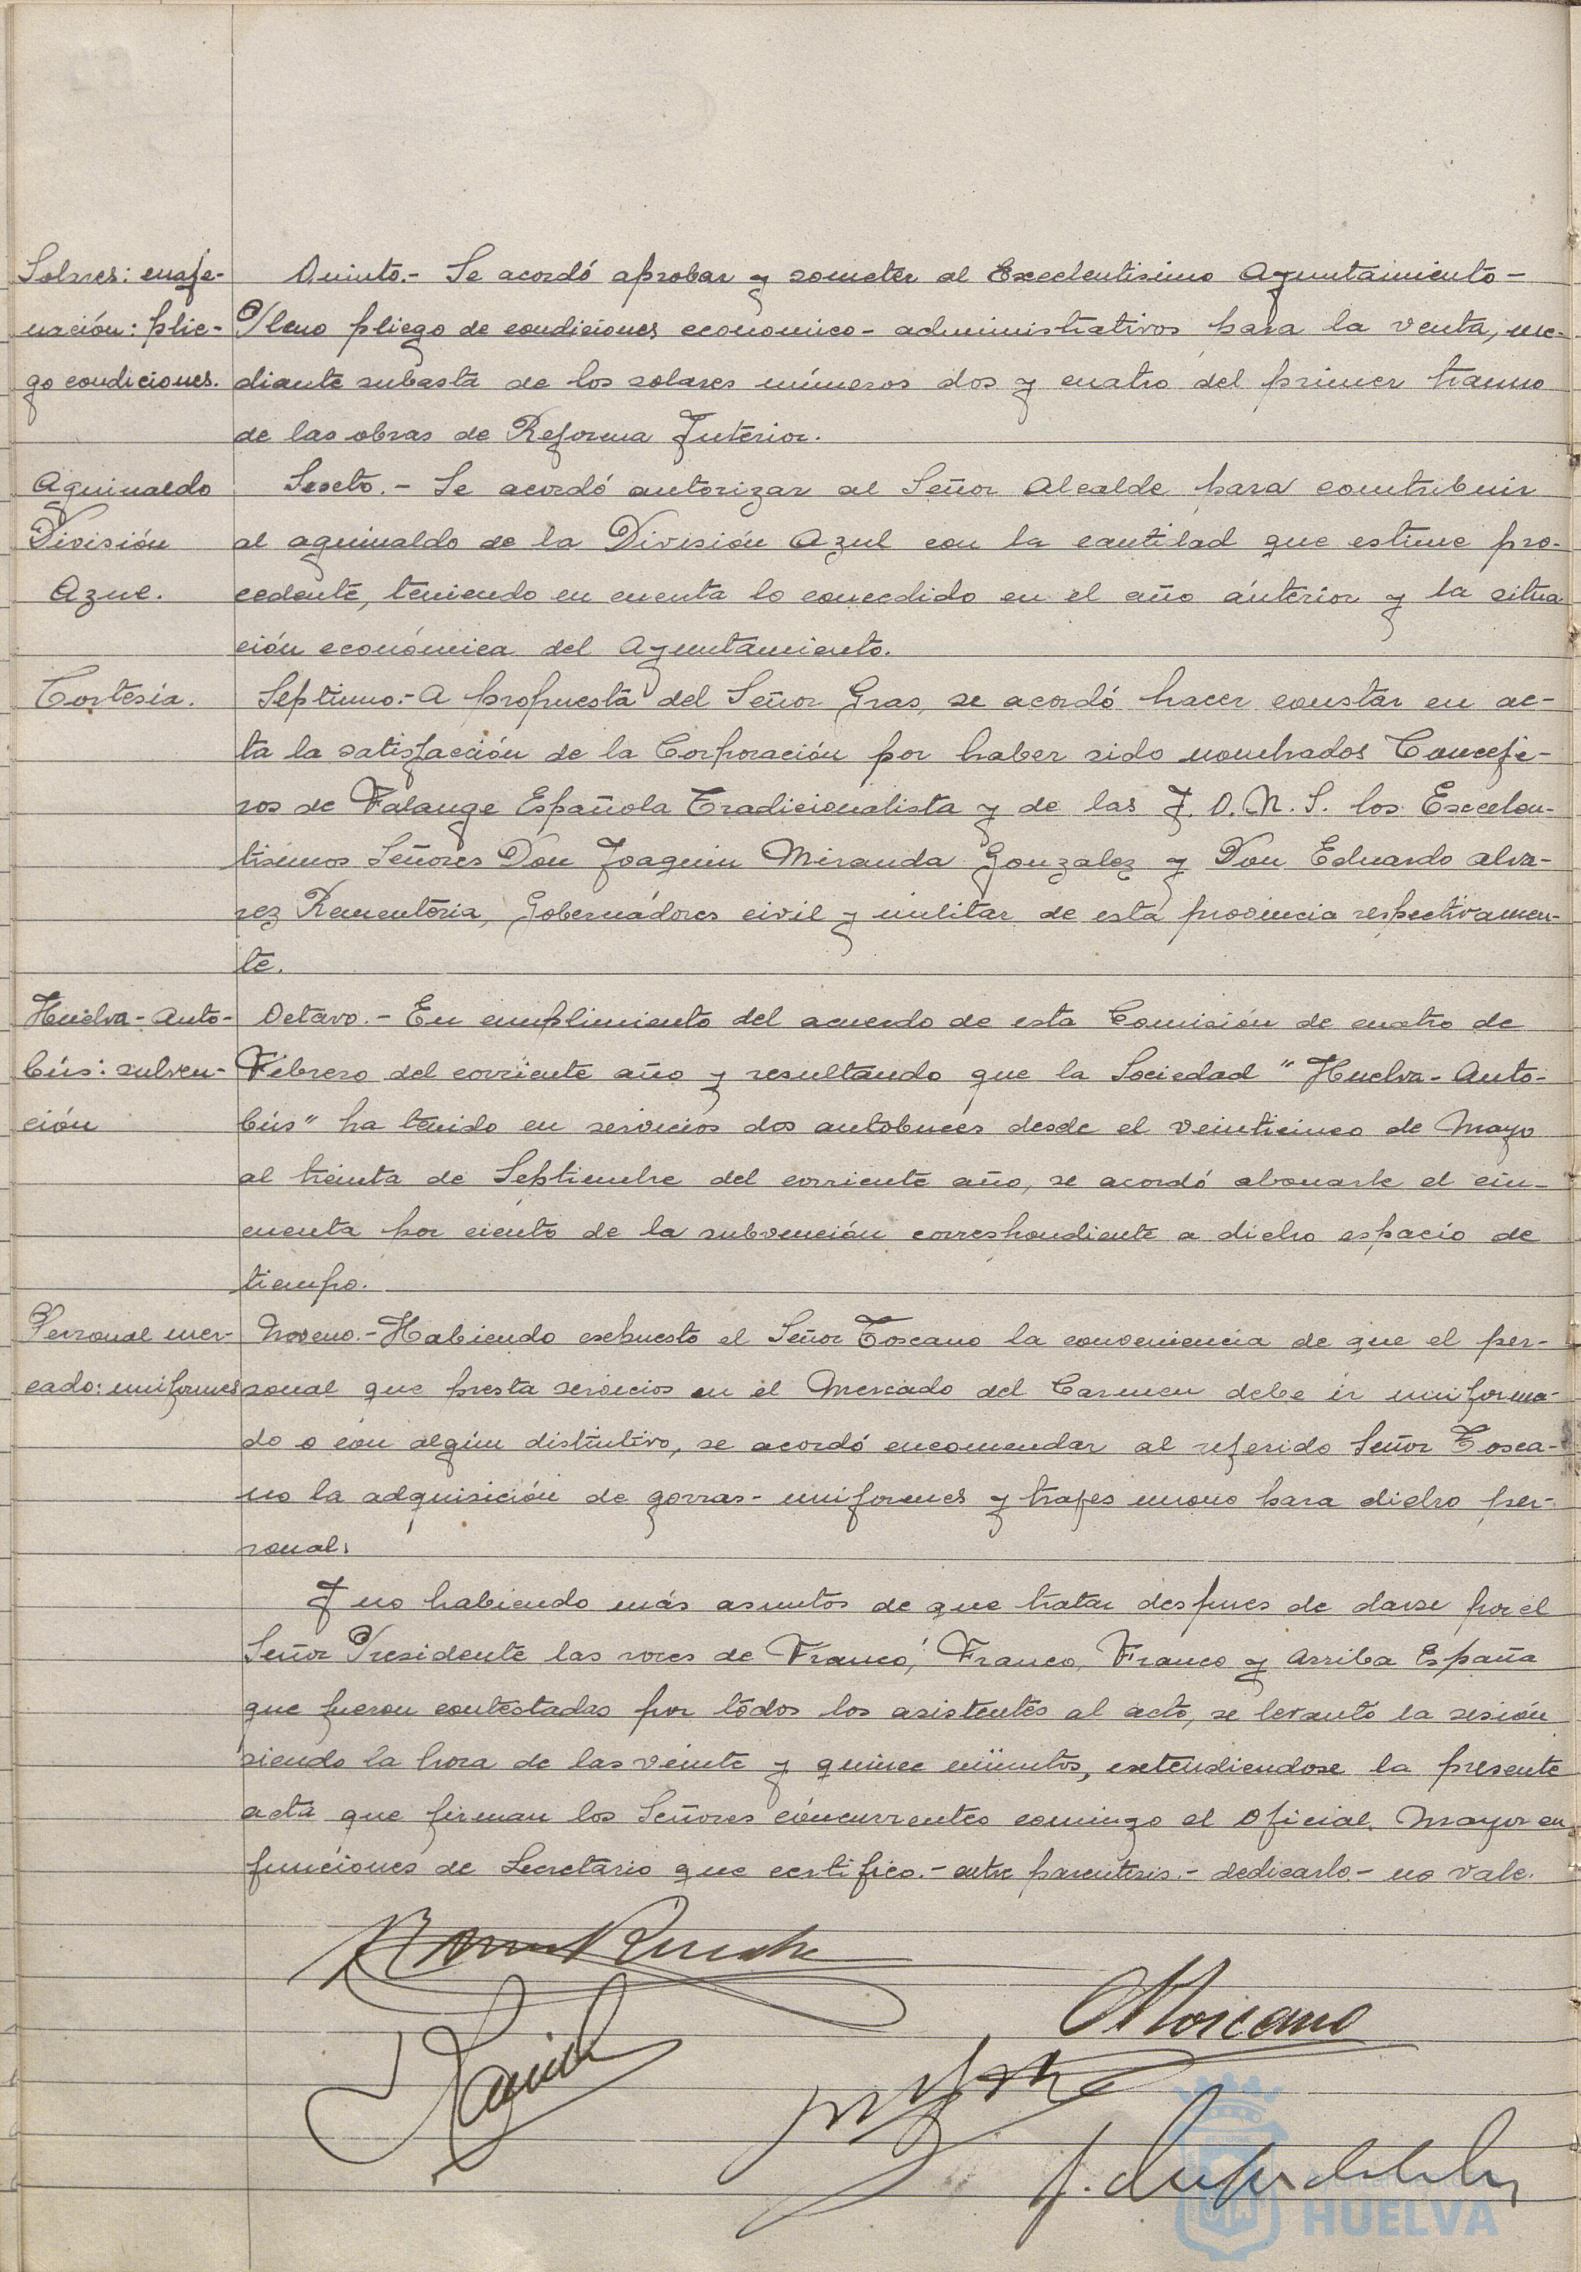 Solares: enaje-
nación: plie-
go condiciones.
Quinto.- Se acordó aprobar y someter al Excelentisimo Ayuntamiento-
Pleno pliego de condiciones economico-administrativos para la venta, me-
diante subasta de los solares números dos y cuatro del primer tramo
de las obras de Reforma Interior.
Aguinaldo
División
Azul.
Sexto.- Se acordó autorizar al Señor Alcalde para contribuir
al aguinaldo de la División Azul con la cantidad que estime pro-
cedente, teniendo en cuenta lo concedido en el año anterior y la situa
ción económica del Ayuntamiento.
Cortesía.
Septimo.- A propuesta del Señor Gras, se acordó hacer constar en ac-
ta la satisfacción de la Corporación por haber sido nombrados Conceje-
ros de Falange Española Tradicionalista y de las J. O. N. S. los Excelen-
tisimos Señores Don Joaquin Miranda Gonzalez y Don Eduardo Alva-
rez Rementeria, Gobernadores civil y militar de esta provincia respectivamen-
te.
Huelva-Auto-
bús: subven-
ción
Octavo.- En cumplimiento del acuerdo de esta Comisión de cuatro de
Febrero del corriente año y resultando que la Sociedad "Huelva-Auto-
bús" ha tenido en servicios dos autobuses desde el veinticinco de Mayo
al treinta de Septiembre del corriente año, se acordó abonarle el cin-
cuenta por ciento de la subvención correspondiente a dicho espacio de
tiempo.
Personal mer-
cado: uniformes
Noveno.- Habiendo expuesto el Señor Toscano la conveniencia de que el per-
sonal que presta servicios en el Mercado del Carmen debe ir uniforma-
do o con algún distintivo, se acordó encomendar al referido Señor Tosca-
no la adquisición de gorras-uniformes y trajes mono para dicho per-
sonal.
Y no habiendo más asuntos de que tratar despues de darse por el
Señor Presidente las voces de Franco, Franco, Franco y Arriba España
que fueron contestadas por todos los asistentes al acto, se levantó la sesión
siendo la hora de las veinte y quince minutos, extendiendose la presente
acta que firman los Señores concurrentes conmigo el Oficial Mayor en
funciones de Secretario que certifico.- entre parentesis.- dedicarlo- no vale.
Toscano
Ayuntamiento de
HUELVA